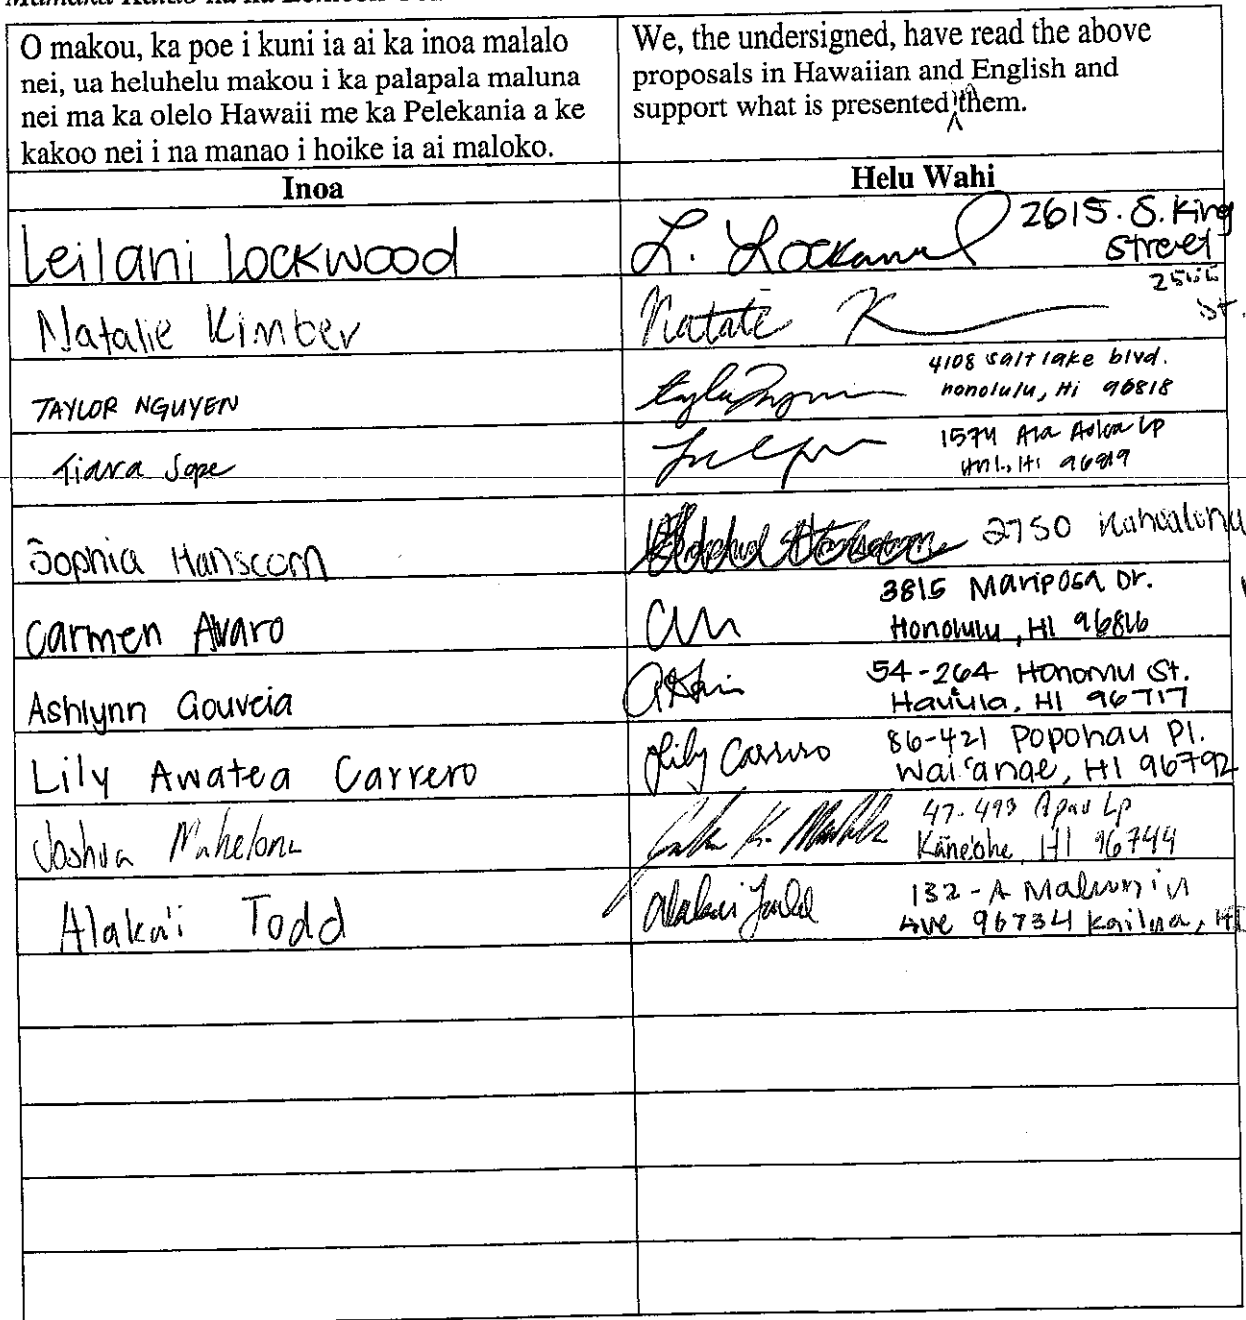 O makou, ka poe i kuni ia ai ka inoa malalo
nei, ua heluhelu makou i ka palapala maluna
nei ma ka olelo Hawaii me ka Pelekania a ke
kakoo nei i na manao i hoike ia ai maloko.
We, the undersigned, have read the above
proposals in Hawaiian and English and
support what is presented them.
Inoa
Helu Wahi
Leilani Lockwood
L. 2615. S. King
Street
Natalie Kimber
TAYLOR NGUYEN
4108 salt lake blvd.
honolulu, Hi 96818
Tiara Sope
1574 Ala Lp
Hnl., Hi
Sophia Hanscom
2750
Carmen Alvaro
3815 Mariposa Dr.
Honolulu, HI 96816
Ashlynn Gouveia
54-264 Honomu St.
Hauula, HI 96717
Lily Awatea Carrero
Lily Carrero
86-421 Popohau Pl.
Wai'anae, HI 96792
Joshua Mahelona
47-493 Apau Lp
Kāneohe, HI 96744
Alaka'i Todd
Alakai Todd
132-A
Ave 96734 Kailua, HI